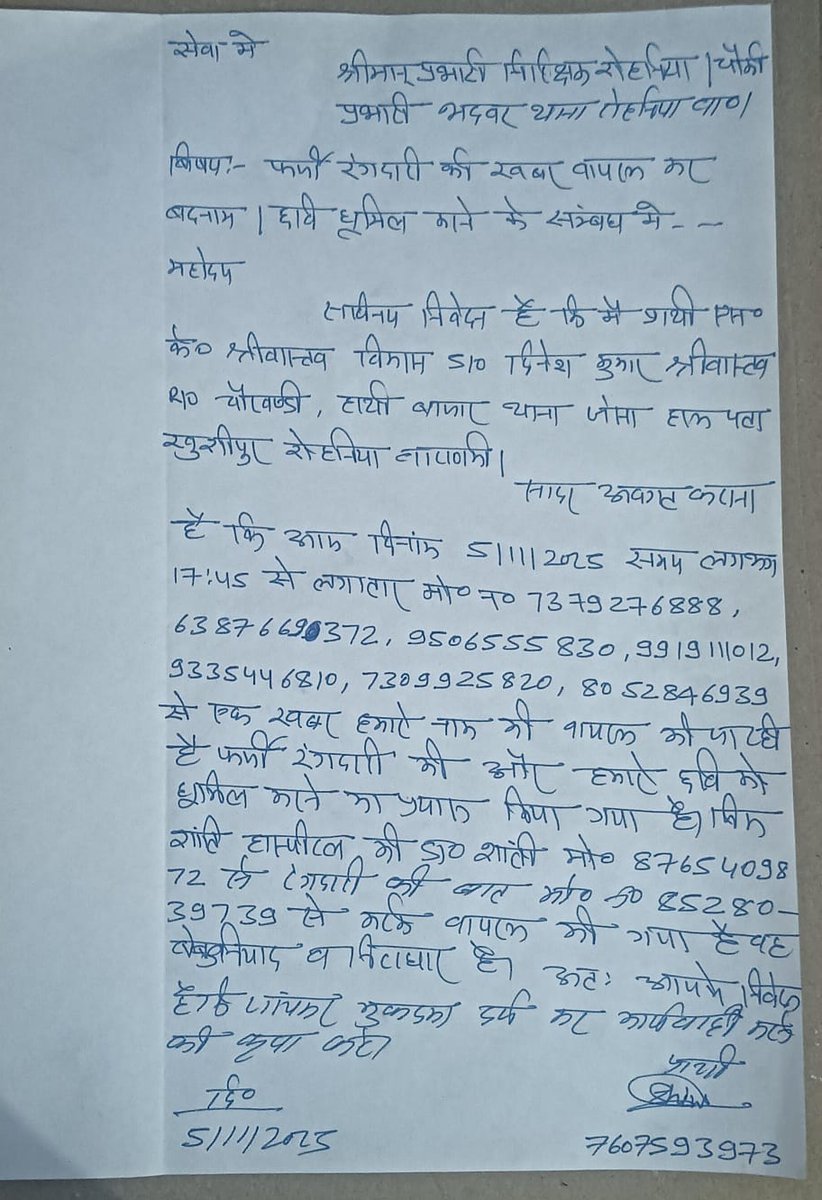 सेवा मे
श्रीमान् प्रभारी निरिक्षक रोहनिया / चौकी
प्रभारी भदवर थाना रोहनिया वा०।
बिषय:- फर्जी रंगदारी की खबर वायरल कर
बदनाम / छवि धूमिल करने के संबंध मे - -
महोदय
सविनय निवेदन है कि मै प्रार्थी एस०
के० श्रीवास्तव विकास S/O दिनेश कुमार श्रीवास्तव
R/O चौखण्डी, हाथी बाजार थाना जंसा हाल पता
खुशीपुर रोहनिया वाराणसी।
सादर अवगत कराना
है कि आज दिनांक 5/11/2025 समय लगभग
17:45 से लगातार मो० न० 7379276888,
6387669372, 9506555830, 9919111012,
9335446810, 7309925820, 8052846939
से एक खबर हमारे नाम की वायरल की जा रही
है फर्जी रंगदारी की और हमारे छवि को
धूमिल करने का प्रयास किया गया है। जिस
शांति हास्पीटल की डा० शांती मो० 87654098
72 से रंगदारी की बात मो० न० 85280-
39739 से करके वायरल की गया है वह
बेबुनियाद व निराधार है। अतः आपसे निवेदन
है कि जांचकर मुकदमा दर्ज कर कार्यवाही करने
की कृपा करे।
प्रार्थी
दि०
5/11/2025
7607593973